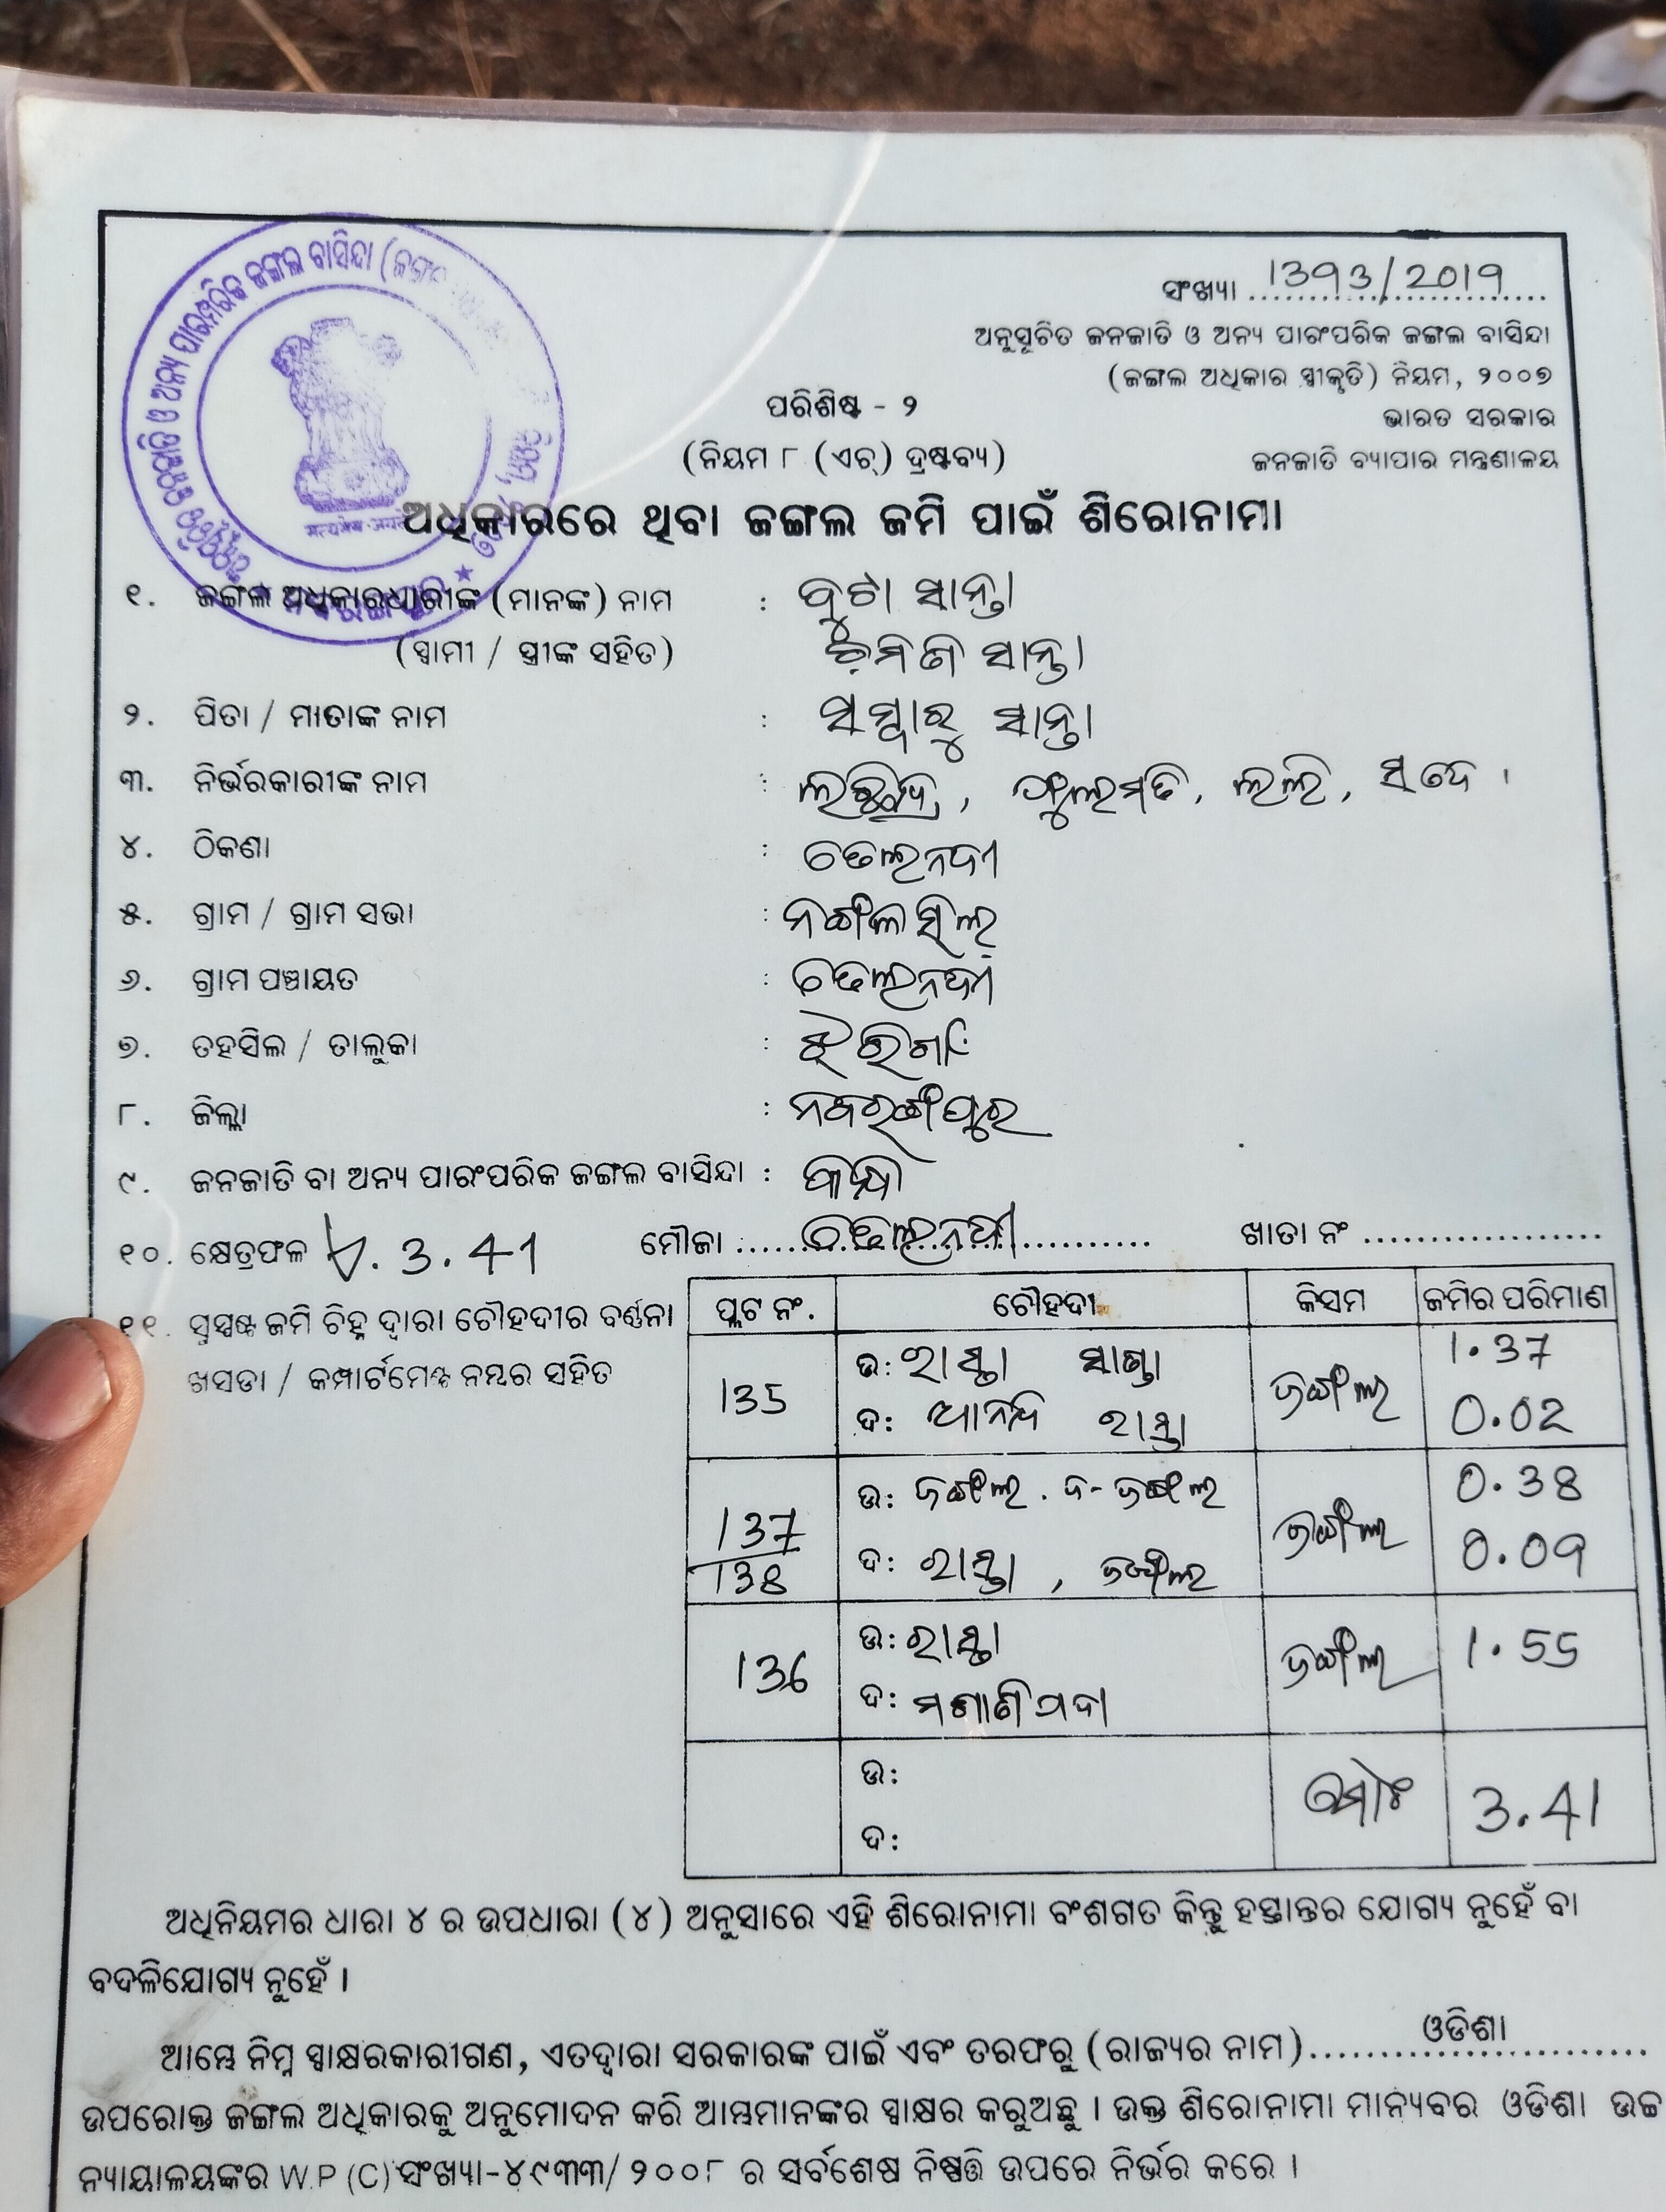 ସଂଖ୍ୟା 1373/2017
ଅନୁସୂଚିତ ଜନଜାତି ଓ ଅନ୍ୟ ପାରଂପରିକ ଜଙ୍ଗଲ ବାସିନ୍ଦା
(ଜଙ୍ଗଲ ଅଧିକାର ସ୍ୱୀକୃତି) ନିୟମ, ୨୦୦୭
ଭାରତ ସରକାର
ଜନଜାତି ବ୍ୟାପାର ମନ୍ତ୍ରଣାଳୟ
ପରିଶିଷ୍ଟ - ୨
(ନିୟମ ୮ (ଏଚ୍) ଦ୍ରଷ୍ଟବ୍ୟ)
ଅଧିକାରରେ ଥିବା ଜଙ୍ଗଲ ଜମି ପାଇଁ ଶିରୋନାମା
୧. ଜଙ୍ଗଲ ଅଧିକାରଧାରୀଙ୍କ (ମାନଙ୍କ) ନାମ : ସାନ୍ତା
(ସ୍ୱାମୀ / ସ୍ତ୍ରୀଙ୍କ ସହିତ) ସାନ୍ତା
୨. ପିତା / ମାତାଙ୍କ ନାମ : ସାନ୍ତା
୩. ନିର୍ଭରକାରୀଙ୍କ ନାମ : ଫୁଲମତି,
୪. ଠିକଣା :
୫. ଗ୍ରାମ / ଗ୍ରାମ ସଭା :
୬. ଗ୍ରାମ ପଞ୍ଚାୟତ :
୭. ତହସିଲ / ତାଲୁକା : ଝରିଗାଁ
୮. ଜିଲ୍ଲା : ନବରଙ୍ଗପୁର
୯. ଜନଜାତି ବା ଅନ୍ୟ ପାରଂପରିକ ଜଙ୍ଗଲ ବାସିନ୍ଦା :
୧୦. କ୍ଷେତ୍ରଫଳ ଏ. 3.41 ମୌଜା ଖାତା ନଂ
୧୧. ସୁସ୍ପଷ୍ଟ ଜମି ଚିହ୍ନ ଦ୍ୱାରା ଚୌହଦୀର ବର୍ଣ୍ଣନା
ଖସଡା / କମ୍ପାର୍ଟମେଣ୍ଟ ନମ୍ବର ସହିତ
ପ୍ଲଟ ନଂ. ଚୌହଦୀ କିସମ ଜମିର ପରିମାଣ
135 ଉ: ରାସ୍ତା ଜଙ୍ଗଲ 1.37
ଦ: ରାସ୍ତା 0.02
137 ଉ: ଜଙ୍ଗଲ. ଦ- ଜଙ୍ଗଲ ଜଙ୍ଗଲ 0.38
138 ଦ: ରାସ୍ତା, ଜଙ୍ଗଲ 0.09
136 ଉ: ରାସ୍ତା ଜଙ୍ଗଲ 1.55
ଦ: ମଶାଣିପଦା
ଉ: ମୋଟ 3.41
ଦ:
ଅଧିନିୟମର ଧାରା ୪ ର ଉପଧାରା (୪) ଅନୁସାରେ ଏହି ଶିରୋନାମା ବଂଶଗତ କିନ୍ତୁ ହସ୍ତାନ୍ତର ଯୋଗ୍ୟ ନୁହେଁ ବା
ବଦଳିଯୋଗ୍ୟ ନୁହେଁ ।
ଆମ୍ଭେ ନିମ୍ନ ସ୍ୱାକ୍ଷରକାରୀଗଣ, ଏତଦ୍ୱାରା ସରକାରଙ୍କ ପାଇଁ ଏବଂ ତରଫରୁ (ରାଜ୍ୟର ନାମ) ଓଡିଶା
ଉପରୋକ୍ତ ଜଙ୍ଗଲ ଅଧିକାରକୁ ଅନୁମୋଦନ କରି ଆମ୍ଭମାନଙ୍କର ସ୍ୱାକ୍ଷର କରୁଅଛୁ । ଉକ୍ତ ଶିରୋନାମା ମାନ୍ୟବର ଓଡିଶା ଉଚ୍ଚ
ନ୍ୟାୟାଳୟଙ୍କର W.P (C) ସଂଖ୍ୟା-୪୯୩୩/ ୨୦୦୮ ର ସର୍ବଶେଷ ନିଷ୍ପତ୍ତି ଉପରେ ନିର୍ଭର କରେ ।